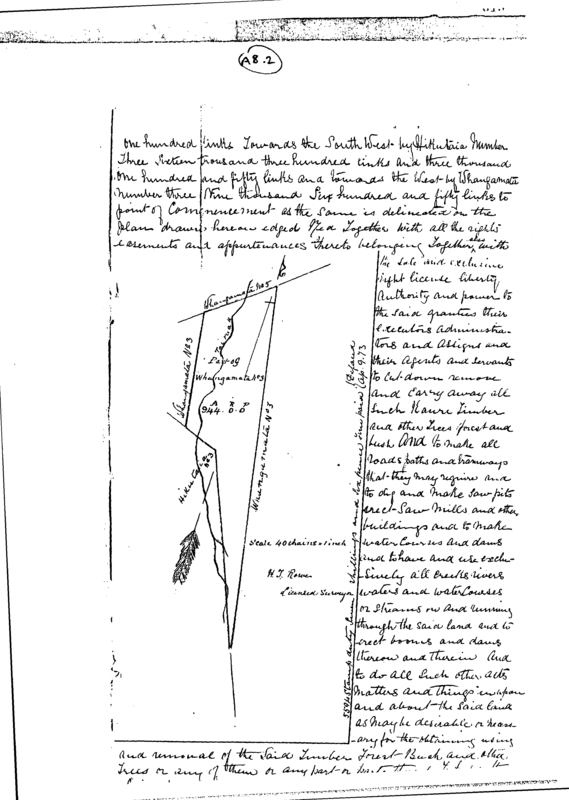 A8.2
one hundred links Towards the South West by Hikutaia Number
Three Sixteen thousand three hundred links and three thousand
one hundred and fifty links and towards the West by Whangamata
number three Nine thousand Six hundred and fifty links to
point of Commencement as the same is delineated on the
plan drawn hereon edged Red Together with all the rights
easements and appurtenances thereto belonging Together also with
the sole and exclusive
right license liberty
Authority and power to
the said grantees their
executors administra-
tors and Assigns and
their Agents and Servants
to Cut down remove
and Carry away all
Such Kauri Timber
and other Trees forest and
bush And to make all
roads paths and tramways
that they may require and
to dig and make Saw pits
erect Saw Mills and other
buildings and to make
water Courses and dams
and to have and use exclu-
-sively all creeks rivers
waters and water Courses
or Streams on And running
through the said land and to
erect booms and dams
thereon and therein And
to do all Such other acts
Matters and things in upon
and about the Said land
as May be desirable or neces-
-ary for the obtaining using
and removal of the Said Timber Forest Bush and other
Trees or any of them or any part or
Whangamata No 5
Whangamata No 3
Part of
Whangamata No 3
A R P
944. 0. 0
Hikutaia
No 3
Whangamata No 3
Scale 40 chains = 1 inch
H. T. Rowe
Licensed Surveyor
Stamp duty Seven Shillings and Sixpence